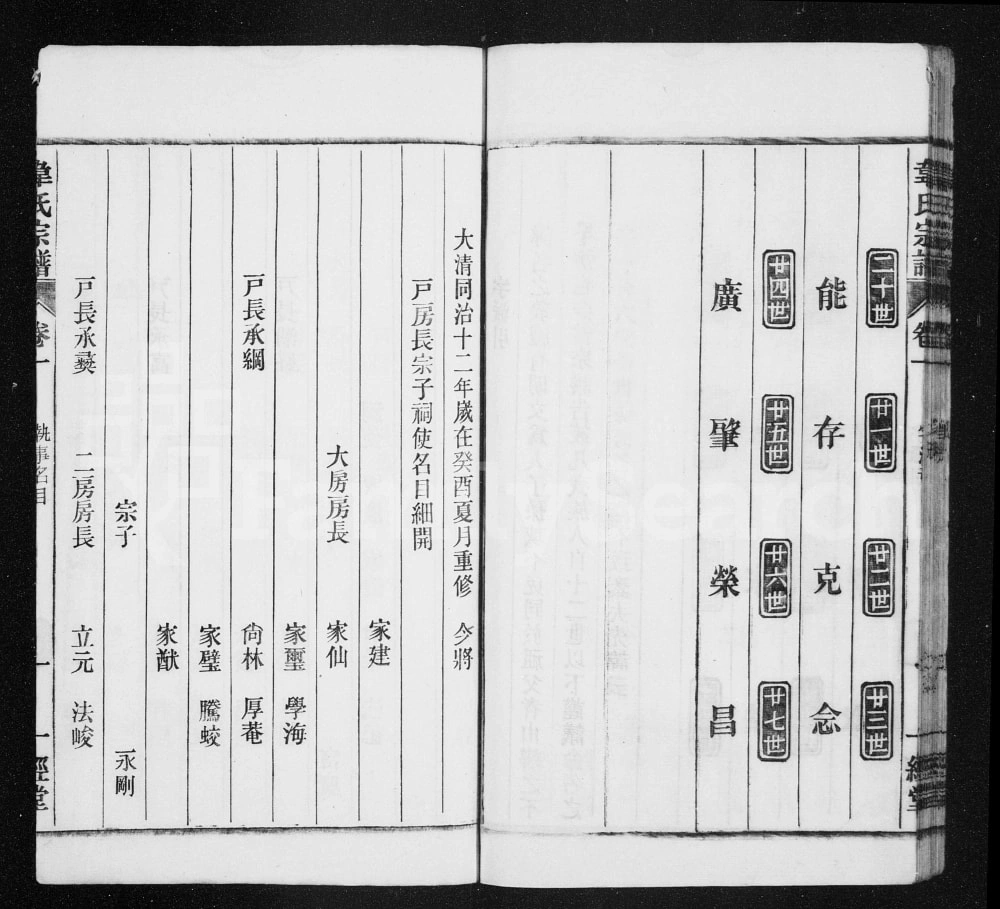 韋氏宗譜 卷一
二十世 廿一世 廿二世 廿三世
能 存 克 念
廿四世 廿五世 廿六世 廿七世
廣 肇 榮 昌
大清同治十二年歲在癸酉夏月重修 今將
戸房長宗子祠使名目細開
家建
大房房長 家仙
家璽 學海
戸長承綱 尙林 厚菴
家璧 騰蛟
家猷
宗子 永剛
戸長承羙 二房房長 立元 法峻
韋氏宗譜 卷一 執事名目 一 一經堂